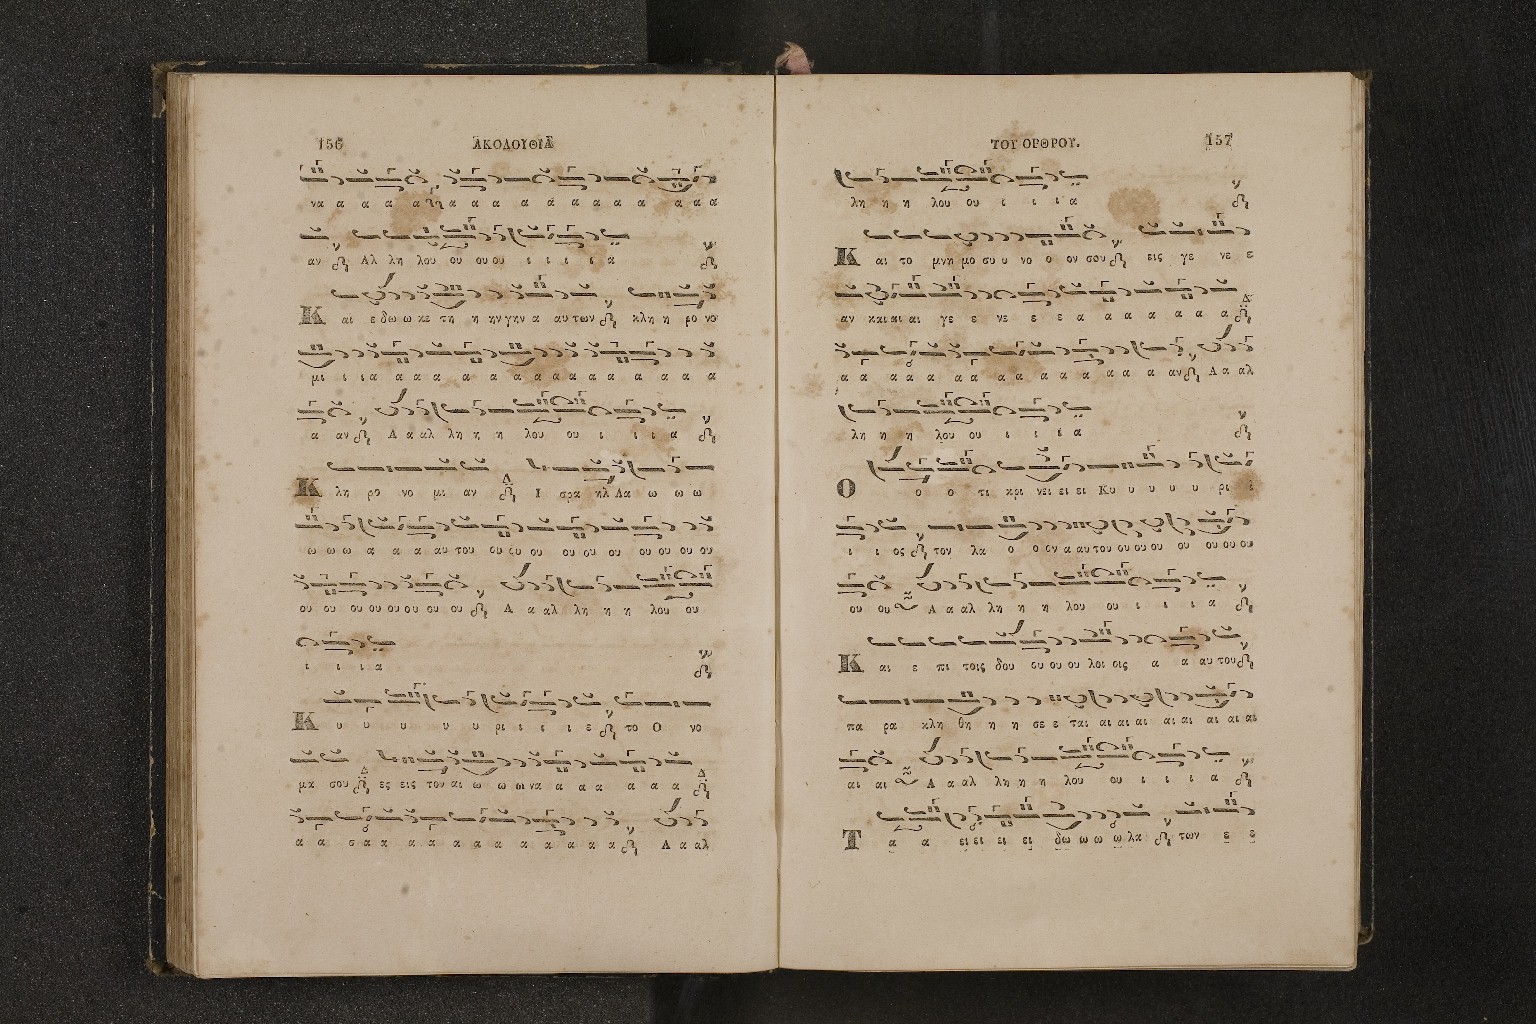 156 ΑΚΟΛΟΥΘΙΑ
να α α α α α α α α α α α α α α α α
αν Αλ λη λου ου ου ου ι ι ι ι α
Κ αι ε δω ω κε τη η ην γην α αυ των κλη η ρο νο
μι ι ι α α α α α α α α α α α α α α α
α αν Α α αλ λη η η λου ου ι ι ι α
Κ λη ρο νο μι αν Ι σρα ηλ Λα ω ω ω
ω ω ω α α α αυ του ου ου ου ου ου ου ου ου ου ου
ου ου ου ου ου ου ου ου Α α αλ λη η η λου ου
ι ι ι α
Κ υ υ υ υ υ ρι ι ι ι ε το Ο νο
μα σου ες εις τον αι ω ω ω να α α α α α α
α α σ α α α α α α α α α α α α Α α αλ
ΤΟΥ ΟΡΘΡΟΥ. 157
λη η η λου ου ι ι ι α
Κ αι το μνη μο συ υ νο ο ον σου εις γε νε ε
αν και αι αι γε ε νε ε ε α α α α α α α
α α α α α α α α α α α α α α αν Α α αλ
λη η η λου ου ι ι ι α
Ο ο ο τι κρι νει ει ει Κυ υ υ υ υ ρι ι
ι ι ος τον λα ο ο ον α αυ του ου ου ου ου ου ου ου
ου ου Α α αλ λη η η λου ου ι ι ι α
Κ αι ε πι τοις δου ου ου ου λοι οις α α αυ του
πα ρα κλη θη η η σε ε ται αι αι αι αι αι αι αι αι
αι αι Α α αλ λη η η λου ου ι ι ι α
Τ α α ει ει ει ει δω ω ω ω λα των ε ε